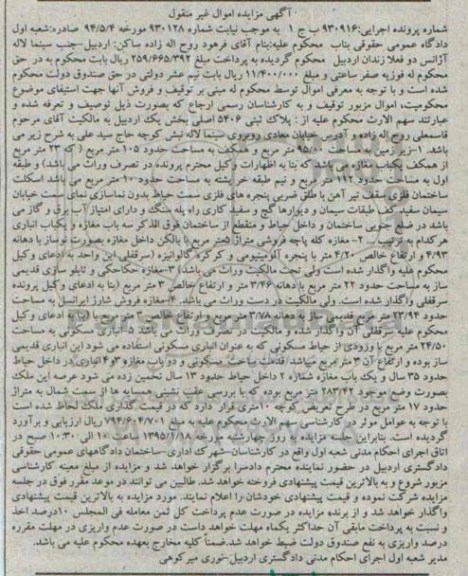 آگهی مزایده اموال غیر منقول
شماره پرونده اجرایی:۹۳۰۹۱۶ ب ج ۱ به موجب نیابت شماره ۹۳۰۱۲۸ مورخه ۹۴/۵/۴ صادره:شعبه اول
دادگاه عمومی حقوقی بناب محکوم علیه:بنام آقای فرهود روح اله زاده ساکن: اردبیل-جنب سینما لاله
آژانس دو فعلا زندان اردبیل محکوم گردیده به پرداخت مبلغ ۲۵۹/۶۶۵/۳۹۲ ریال بابت محکوم به در حق
محکوم له فوزیه صفر ساعتی و مبلغ ۱۱/۴۰۰/۰۰۰ ریال بابت نیم عشر دولتی در حق صندوق دولت محکوم
شده است و با توجه به معرفی اموال توسط محکوم له مبنی بر توقیف و فروش آنها جهت استیفای موضوع
محکومیت، اموال مزبور توقیف و به کارشناسان رسمی ارجاع که بصورت ذیل توصیف و تعرفه شده و
عبارتند سهم الارث محکوم علیه از : پلاک ثبتی ۵۴۰۶ اصلی بخش یک اردبیل به مالکیت آقای مرحوم
قاسمعلی روح اله زاده و آدرس خیابان معادی روبروی سینما لاله نبش کوچه حاج سید علی به شرح زیر می
باشد. ۱-زیرزمین به مساحت ۹۵/۰ متر مربع و همکف به مساحت حدود ۱۰۵ متر مربع ( که ۲۳ متر مربع
از همکف یکباب مغازه می باشد که بنا به اظهارات وکیل محترم پرونده در تصرف وراث می باشد) و طبقه
اول به مساحت حدود ۱۱۲ متر مربع و نیم طبقه خرپشته به مساحت حدود ۱۰ متر مربع می باشد اسکلت
ساختمان فلزی سقف تیر آهن با طاق ضربی پنجره های فلزی سمت حیاط بدون نماسازی نمای سمت خیابان
سیمان سفید کف طبقات سیمان و دیوارها گچ و سفید کاری راه پله سنگ و دارای امتیاز آب برق و گاز می
باشد در ضلع جنوبی ساختمان و داخل حیاط و منقطع از ساختمان فوق الذکر سه باب مغازه و یکباب انباری
هر کدام به ترتیب . ۲-مغازه کله پاچه فروشی متراژ ۵متر مربع با بالکن داخل مغازه بصورت نوساز با دهانه
۴/۹۳ و ارتفاع خالص ۴/۲۰ متر با پنجره آلومینیومی و کرکره گالوانیزه (سرقفلی این واحد به ادعای وکیل
محکوم علیه واگذار شده است ولی تحت مالکیت وراث می باشد) ۳-مغازه حکاکچی و تابلو سازی قدیمی
ساز به مساحت حدود ۲۲ متر مربع با دهانه ۳/۴۶ متر و ارتفاع خالص ۳ متر مربع (بنا به ادعای وکیل پرونده
سرقفلی واگذار شده است. ولی مالکیت در دست وراث می باشد. ۴-مغازه فروش شارژ ایرانسل به مساحت
حدود ۲۳/۹۴ متر مربع قدیمی ساز با دهانه ۳/۷۸ متر مربع و ارتفاع خالص ۳ متر مربع (بنا به ادعای وکیل
محکوم علیه سرقفلی آن واگذار شده و مالکیت در دست وراث می باشد ۵-انباری مسکونی به مساحت
۲۴/۵۰ متر مربع با ورودی از حیاط مسکونی که به عنوان انباری مسکونی استفاده می شود این انباری قدیمی
ساز بوده و ارتفاع آن ۳ متر مربع میباشد/قدمت ساخت مسکونی و دو باب مغازه ۳و۴ انباری در داخل حیاط
حدود ۳۵ سال و یک باب مغازه شماره ۲ داخل حیاط حدود ۱۳ سال تخمین زده می شود عرصه این ملک
بصورت وضع موجود ۲۸۳/۴۲ متر مربع بوده که با بررسی عقب نشینی همسایه ها از سمت شمال به متراژ
حدود ۱۷ متر مربع در طرح تعریض کوچه ۱۰متری قرار دارد که در قیمت گذاری ملک لحاظ شده است
با توجه به عوامل موثر در کارشناسی سهم الارث محکوم علیه به مبلغ ۷۹۲/۶۰۴/۷۰۱ ریال ارزیابی و برآورد
گردیده است. بنابراین جلسه مزایده به روز چهارشنبه مورخه ۱۳۹۵/۲/۸ ساعت ۱۰ الی ۱۰:۳۰ صبح در
اتاق اجرای احکام مدنی شعبه اول واقع در کارشناسان-شهرک اداری-ساختمان دادگاههای عمومی حقوقی
دادگستری اردبیل در حضور نماینده محترم دادسرا برگزار خواهد شد و مزایده از مبلغ معینه کارشناسی
مزبور شروع و به بالاترین قیمت پیشنهادی فروخته خواهد شد. طالبین می توانند در موعد مقرر فوق در جلسه
مزایده شرکت نموده و قیمت پیشنهادی خودشان را اعلام نمایند. مورد مزایده به بالاترین قیمت پیشنهادی
واگذار خواهد شد و از برنده مزایده در صورت عدم پرداخت کل ثمن معامله فی المجلس ۱۰درصد اخذ
و نسبت به پرداخت مابقی آن حداکثر یکماه مهلت خواهد داشت در صورت عدم واریزی در مهلت مقرره
درصد واریزی به نفع صندوق دولت ضبط خواهد شد.ضمناً کلیه مخارج بعهده محکوم علیه می باشد.
مدیر شعبه اول اجرای احکام مدنی دادگستری اردبیل-نوری میرکوهی